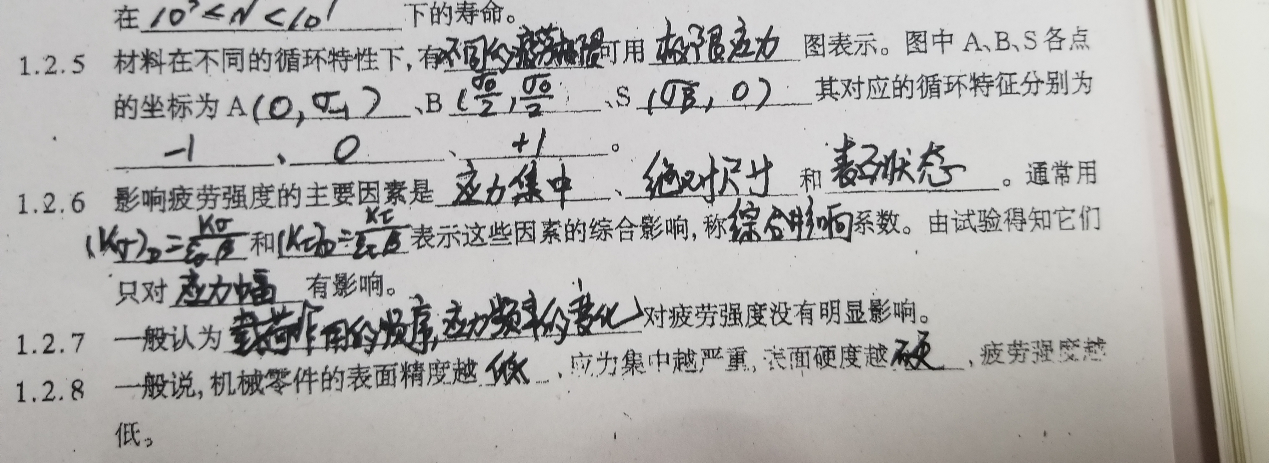 在 10³<N<10⁷ 下的寿命。
1.2.5 材料在不同的循环特性下,有不同的疲劳极限可用 极限应力 图表示。图中 A、B、S 各点
的坐标为 A(0,σ₋₁)、B(σ₀/2,σ₀/2)、S(σB,0) 其对应的循环特征分别为
-1、0、+1。
1.2.6 影响疲劳强度的主要因素是 应力集中、绝对尺寸 和 表面状态。通常用
(Kσ)D=Kσ/εσβ 和 (Kτ)D=Kτ/ετβ 表示这些因素的综合影响,称 综合影响 系数。由试验得知它们
只对 应力幅 有影响。
1.2.7 一般认为 载荷作用的顺序,应力频率的变化 对疲劳强度没有明显影响。
1.2.8 一般说,机械零件的表面精度越 低、应力集中越严重,表面硬度越 硬,疲劳强度越
低。